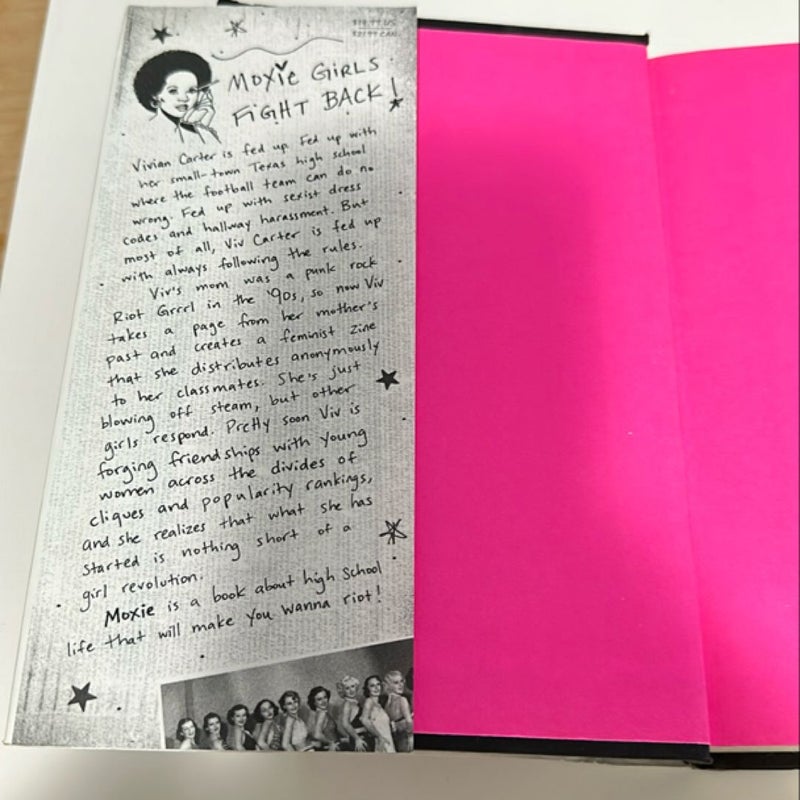 MOXIE GIRLS
FIGHT BACK!
Vivian Carter is fed up. Fed up with
her small-town Texas high school
where the football team can do no
wrong. Fed up with sexist dress
codes and hallway harassment. But
most of all, Viv Carter is fed up
with always following the rules.
Viv's mom was a punk rock
Riot Grrrl in the '90s, so now Viv
takes a page from her mother's
past and creates a feminist zine
that she distributes anonymously
to her classmates. She's just
blowing off steam, but other
girls respond. Pretty soon Viv is
forging friendships with young
women across the divides of
cliques and popularity rankings,
and she realizes that what she has
started is nothing short of a
girl revolution.
Moxie is a book about high school
life that will make you wanna riot!